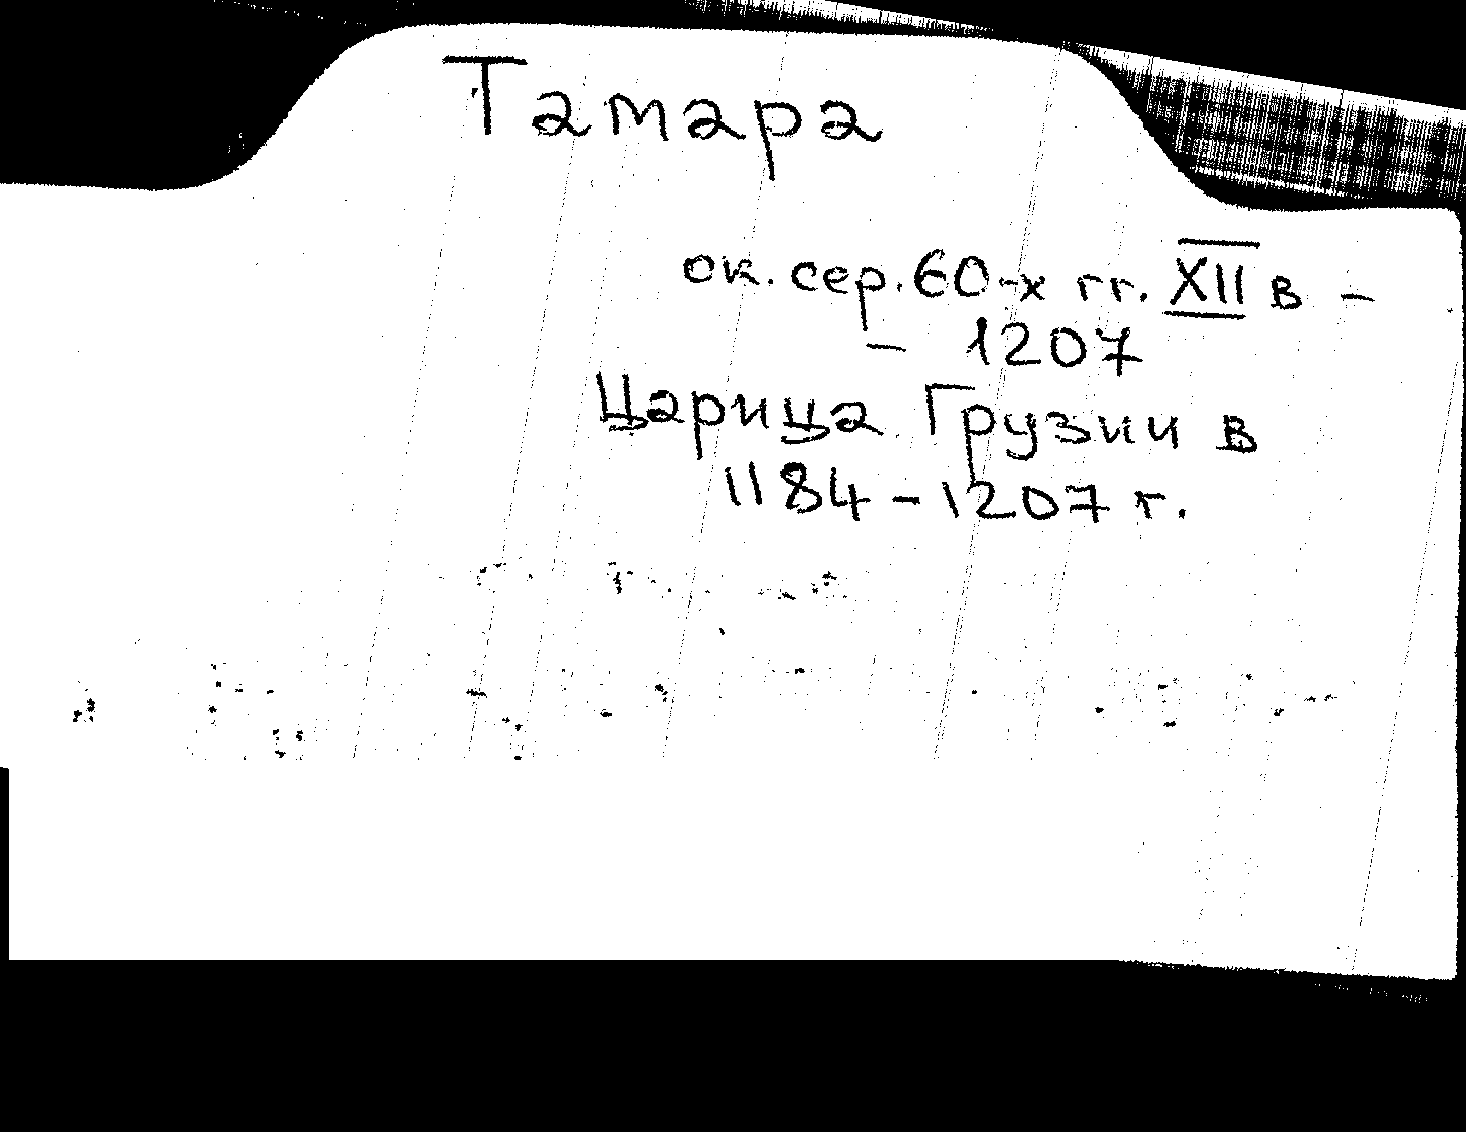 Тамара
ок. сер. 60-х гг. XII в -
- 1207
Царица Грузии в
1184-1207 г.